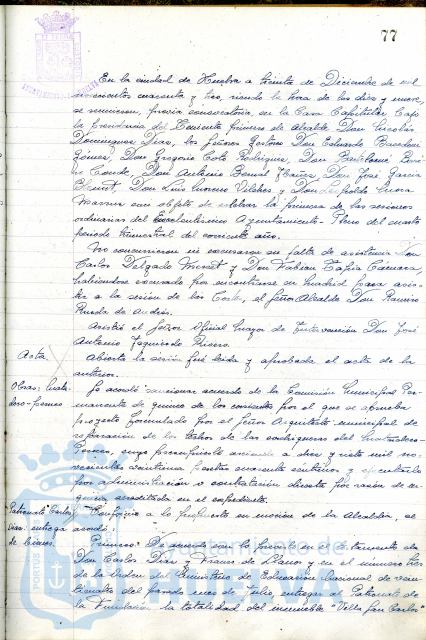 77
En la ciudad de Huelva a treinta de Diciembre de mil
novecientos cuarenta y tres, siendo la hora de las diez y nueve,
se reunieron, previa convocatoria, en la Casa Capitular bajo
la presidencia del Teniente primero de Alcalde Don Nicolás
Dominguez Diaz, los Señores Gestores Don Eduardo
Gomez, Don Gregorio Rodriguez, Don Bartolomé
Conde, Don Antonio Bernal Ibañez, Don José Garcia
Don Luis Moreno Vilches y Don Leopoldo Mora
con objeto de celebrar la primera de las sesiones
ordinarias del Excelentisimo Ayuntamiento Pleno del cuarto
periodo trimestral del corriente año.
No concurrieron ni excusaron su falta de asistencia Don
Carlos Delgado y Don Fabian Tapia Camara,
habiendose excusado por encontrarse en Madrid para asis-
tir a la sesion de las Cortes, el Señor Alcalde Don Ramiro
Rueda de Andres.
Asistió el Señor Oficial Mayor de Intervencion Don José
Antonio Izquierdo Piñero.
Acta
Abierta la sesion fué leida y aprobada el acta de la
anterior.
Obras:
Se acordó sancionar acuerdo de la Comision Municipal Per-
manente de quince de los corrientes por el que se aprueba
proyecto formulado por el Señor Arquitecto municipal de
reparacion de los techos de las del Matadero
cuyo presupuesto asciende a diez y siete mil no-
vecientas veintiuna pesetas cuarenta centimos y ejecutarlo
por administracion o contratacion directa por razon de ur-
gencia acreditada en el expediente.
Patronato San Carlos
entrega
de bienes.
Conforme a lo propuesto en mocion de la Alcaldia, se
acordó:
Primero: De acuerdo con lo previsto en testamento de
Don Carlos Diaz y Franco de Llanos y en el numero tres
de la Orden del Ministerio de Educacion Nacional de vein-
ticuatro del pasado mes de Julio, entregar al Patronato de
la Fundacion la totalidad del inmueble "Villa San Carlos"
Ayuntamiento de
HUELVA
PORTUS